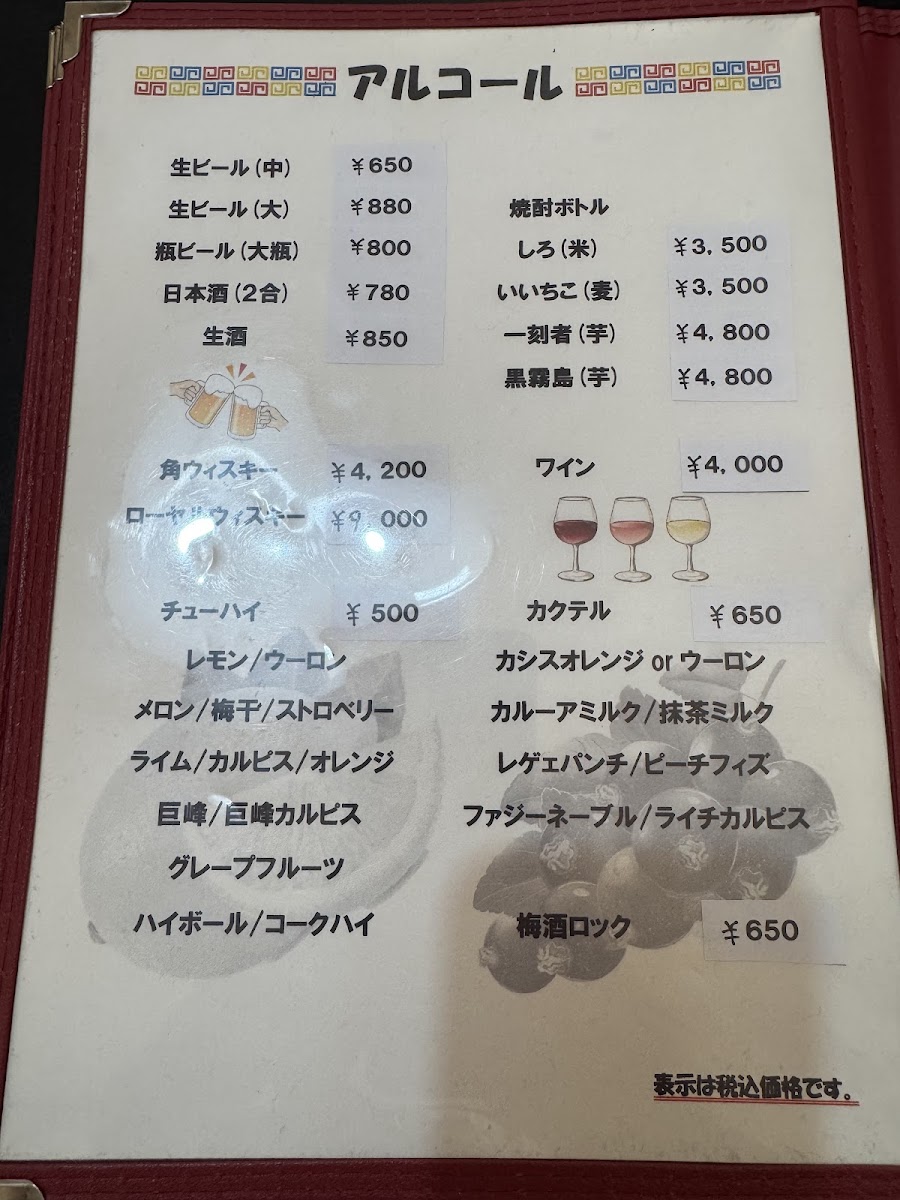 アルコール
生ビール(中) ¥650
生ビール(大) ¥880
瓶ビール(大瓶) ¥800
日本酒(2合) ¥780
生酒 ¥850
角ウィスキー ¥4,200
ローヤルウィスキー ¥9,000
チューハイ ¥500
レモン/ウーロン
メロン/梅干/ストロベリー
ライム/カルピス/オレンジ
巨峰/巨峰カルピス
グレープフルーツ
ハイボール/コークハイ
焼酎ボトル
しろ(米) ¥3,500
いいちこ(麦) ¥3,500
一刻者(芋) ¥4,800
黒霧島(芋) ¥4,800
ワイン ¥4,000
カクテル ¥650
カシスオレンジ or ウーロン
カルーアミルク/抹茶ミルク
レゲェパンチ/ピーチフィズ
ファジーネーブル/ライチカルピス
梅酒ロック ¥650
表示は税込価格です。